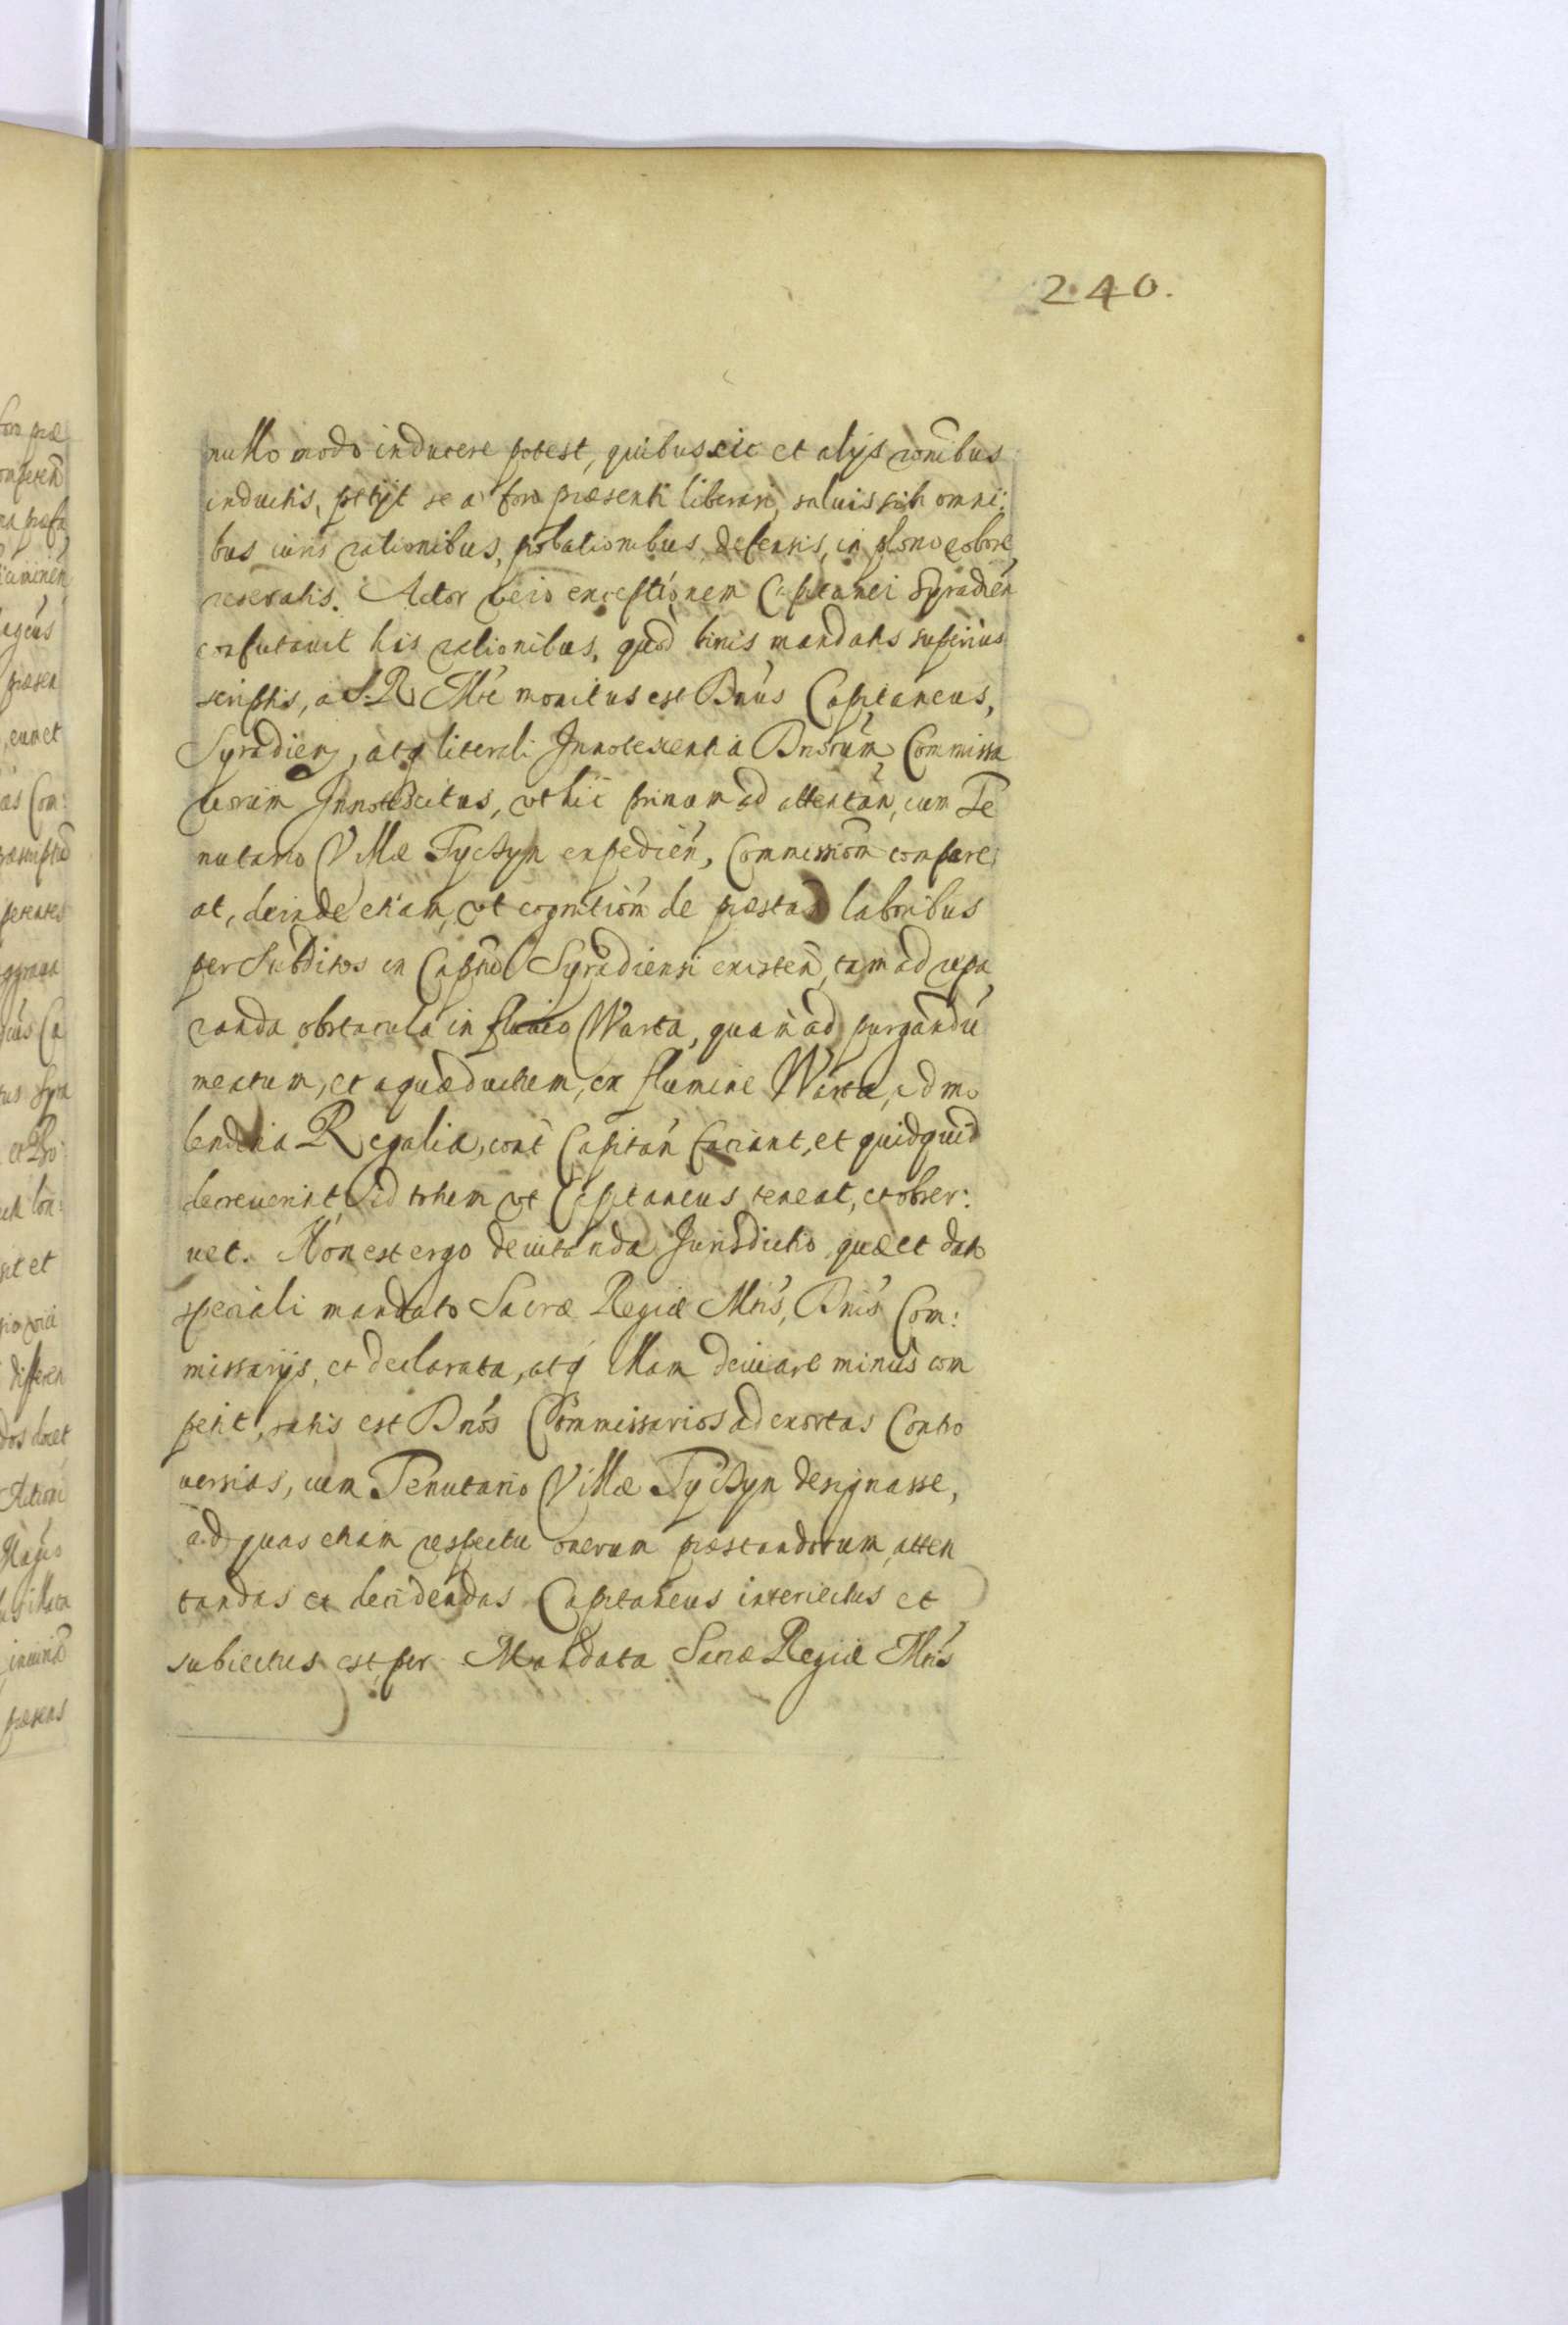 240.
nullo modo inducere potest, quibus sic et alijs rõnibus
inductis, petijt se a foro præsenti liberari, saluis sibi omni:
bus iuris rationibus, probationibus, defensis, in pleno robore
reseruatis. Actor vero exceptionem Capitanei Syradień
confutauit his rationibus, quod binis mandatis superius
scriptis, a S. R. Mte monitus est Dnus Capitaneus,
Syradień, atq literali Innotescentia Dnorum Commissa
riorum Innotescitus, vt hic primum ad attentań, cum Te
nutario Villæ Tyczyn expedień, Commissiom compare:
at, deinde etiam, vt cognitiom de præstań laboribus
per Subditos in Capneo Syradiensi existeń, tam ad repa
randa obstacula in fluuio Warta, quam ad purgandu
meatum, et aquæductum, ex flumine Warta, ad mo
lendina Regalia, cont Capitań faciant, et quidquid
decreuerint id totum vt Capitaneus teneat, et obser:
uet. Non est ergo deuitanda Jurisdictio, quæ et dato
speciali mandato Sacræ Regiæ Mtis, Dnis Com:
missarijs, et declarata, atq illam deuiare minus com
petit, satis est Dnos Commissarios ad exortas Contro
uersias, cum Tenutario Villæ Tyczyn designasse,
ad quas etiam respectu onerum præstandorum, atten
tandas et decidendas Capitaneus interiectus et
subiectus est, per Mandata Sacræ Regiæ Mtis